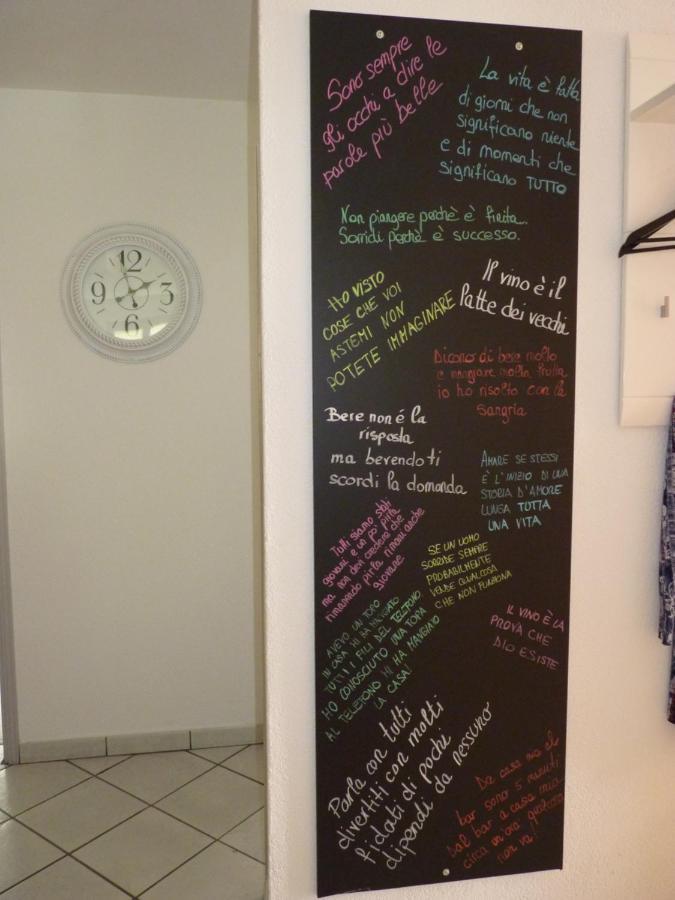 12
9
3
6
Sono sempre
gli occhi a dire le
parole più belle
La vita è fatta
di giorni che non
significano niente
e di momenti che
significano TUTTO
Non piangere perchè è finita...
Sorridi perchè è successo.
Il vino è il
latte dei vecchi
HO VISTO
COSE CHE VOI
ASTEMI NON
POTETE IMMAGINARE
Dicono di bere molto
e mangiare molta frutta
io ho risolto con la
sangria
Bere non é la
risposta
ma bevendo ti
scordi la domanda
AMARE SE STESSI
È L'INIZIO DI UNA
STORIA D'AMORE
LUNGA TUTTA
UNA VITA
Tutti siamo stati
giovani e un po' pirla
ma non devi credere che
rimanendo pirla rimani anche
giovane
SE UN UOMO
SORRIDE SEMPRE
PROBABILMENTE
VENDE QUALCOSA
CHE NON FUNZIONA
AVEVO UN TOPO
IN CASA MI HA MANGIATO
TUTTI I FILI DEL TELEFONO.
HO CONOSCIUTO UNA TOPA
AL TELEFONO MI HA MANGIATO
LA CASA!
IL VINO È LA
PROVA CHE
DIO ESISTE
Parla con tutti
divertiti con molti
fidati di pochi
dipendi da nessuno
Da casa mia al
bar sono 5 minuti
Dal bar a casa mia
circa un'ora qualcosa
non va!